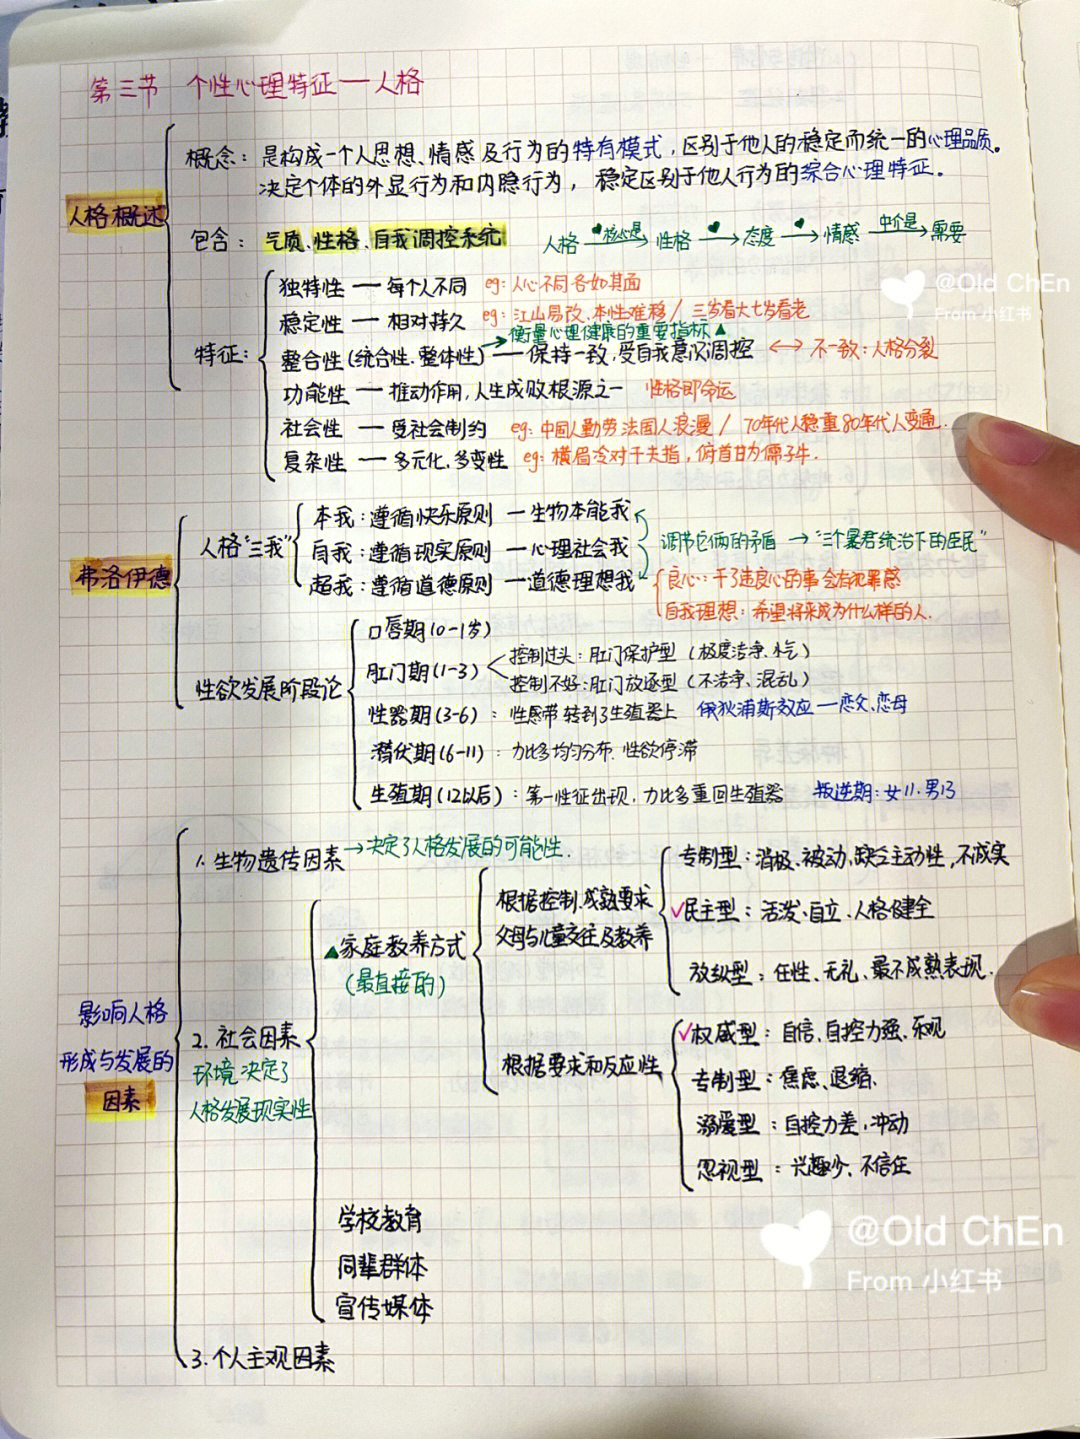 第三节 个性心理特征—人格
人格概述
概念：是构成一个人思想、情感及行为的特有模式，区别于他人的稳定而统一的心理品质。
决定个体的外显行为和内隐行为，稳定区别于他人行为的综合心理特征。
包含：气质、性格、自我调控系统 人格 核心是→ 性格 → 态度 → 情感 中介是→ 需要
特征：
独特性 — 每个人不同 eg：人心不同各如其面
稳定性 — 相对持久 eg：江山易改、本性难移 / 三岁看大七岁看老
→衡量心理健康的重要指标▲
整合性(统合性、整体性) — 保持一致，受自我意识调控 ↔ 不一致：人格分裂
功能性 — 推动作用，人生成败根源之一 性格即命运
社会性 — 受社会制约 eg：中国人勤劳 法国人浪漫 / 70年代人稳重 80年代人变通.
复杂性 — 多元化、多变性 eg：横眉冷对千夫指，俯首甘为儒子牛.
弗洛伊德
人格“三我”
本我：遵循快乐原则 — 生物本能我
自我：遵循现实原则 — 心理社会我 调节它俩的矛盾 → “三个暴君统治下的臣民”
超我：遵循道德原则 — 道德理想我
良心：干了违良心的事会有犯罪感
自我理想：希望将来成为什么样的人.
性欲发展阶段论
口唇期(0-1岁)
肛门期(1-3)
控制过头：肛门保护型（极度洁净、小气）
控制不好：肛门放逐型（不洁净、混乱）
性器期(3-6)：性感带转到了生殖器上 俄狄浦斯效应—恋父、恋母
潜伏期(6-11)：力比多均匀分布、性欲停滞
生殖期(12以后)：第一性征出现，力比多重回生殖器 叛逆期：女11.男13
影响人格
形成与发展的
因素
1. 生物遗传因素→决定了人格发展的可能性.
2. 社会因素
环境决定了
人格发展现实性
▲家庭教养方式
(最直接的)
根据控制、成熟要求
父母与儿童交往及教养
专制型：消极、被动、缺乏主动性，不诚实
✓民主型：活泼、自立、人格健全
放纵型：任性、无礼、最不成熟表现.
根据要求和反应性
✓权威型：自信、自控力强、乐观
专制型：焦虑、退缩、
溺爱型：自控力差，冲动
忽视型：兴趣少、不信任
学校教育
同辈群体
宣传媒体
3. 个人主观因素
@Old ChEn
From 小红书
@Old ChEn
From 小红书